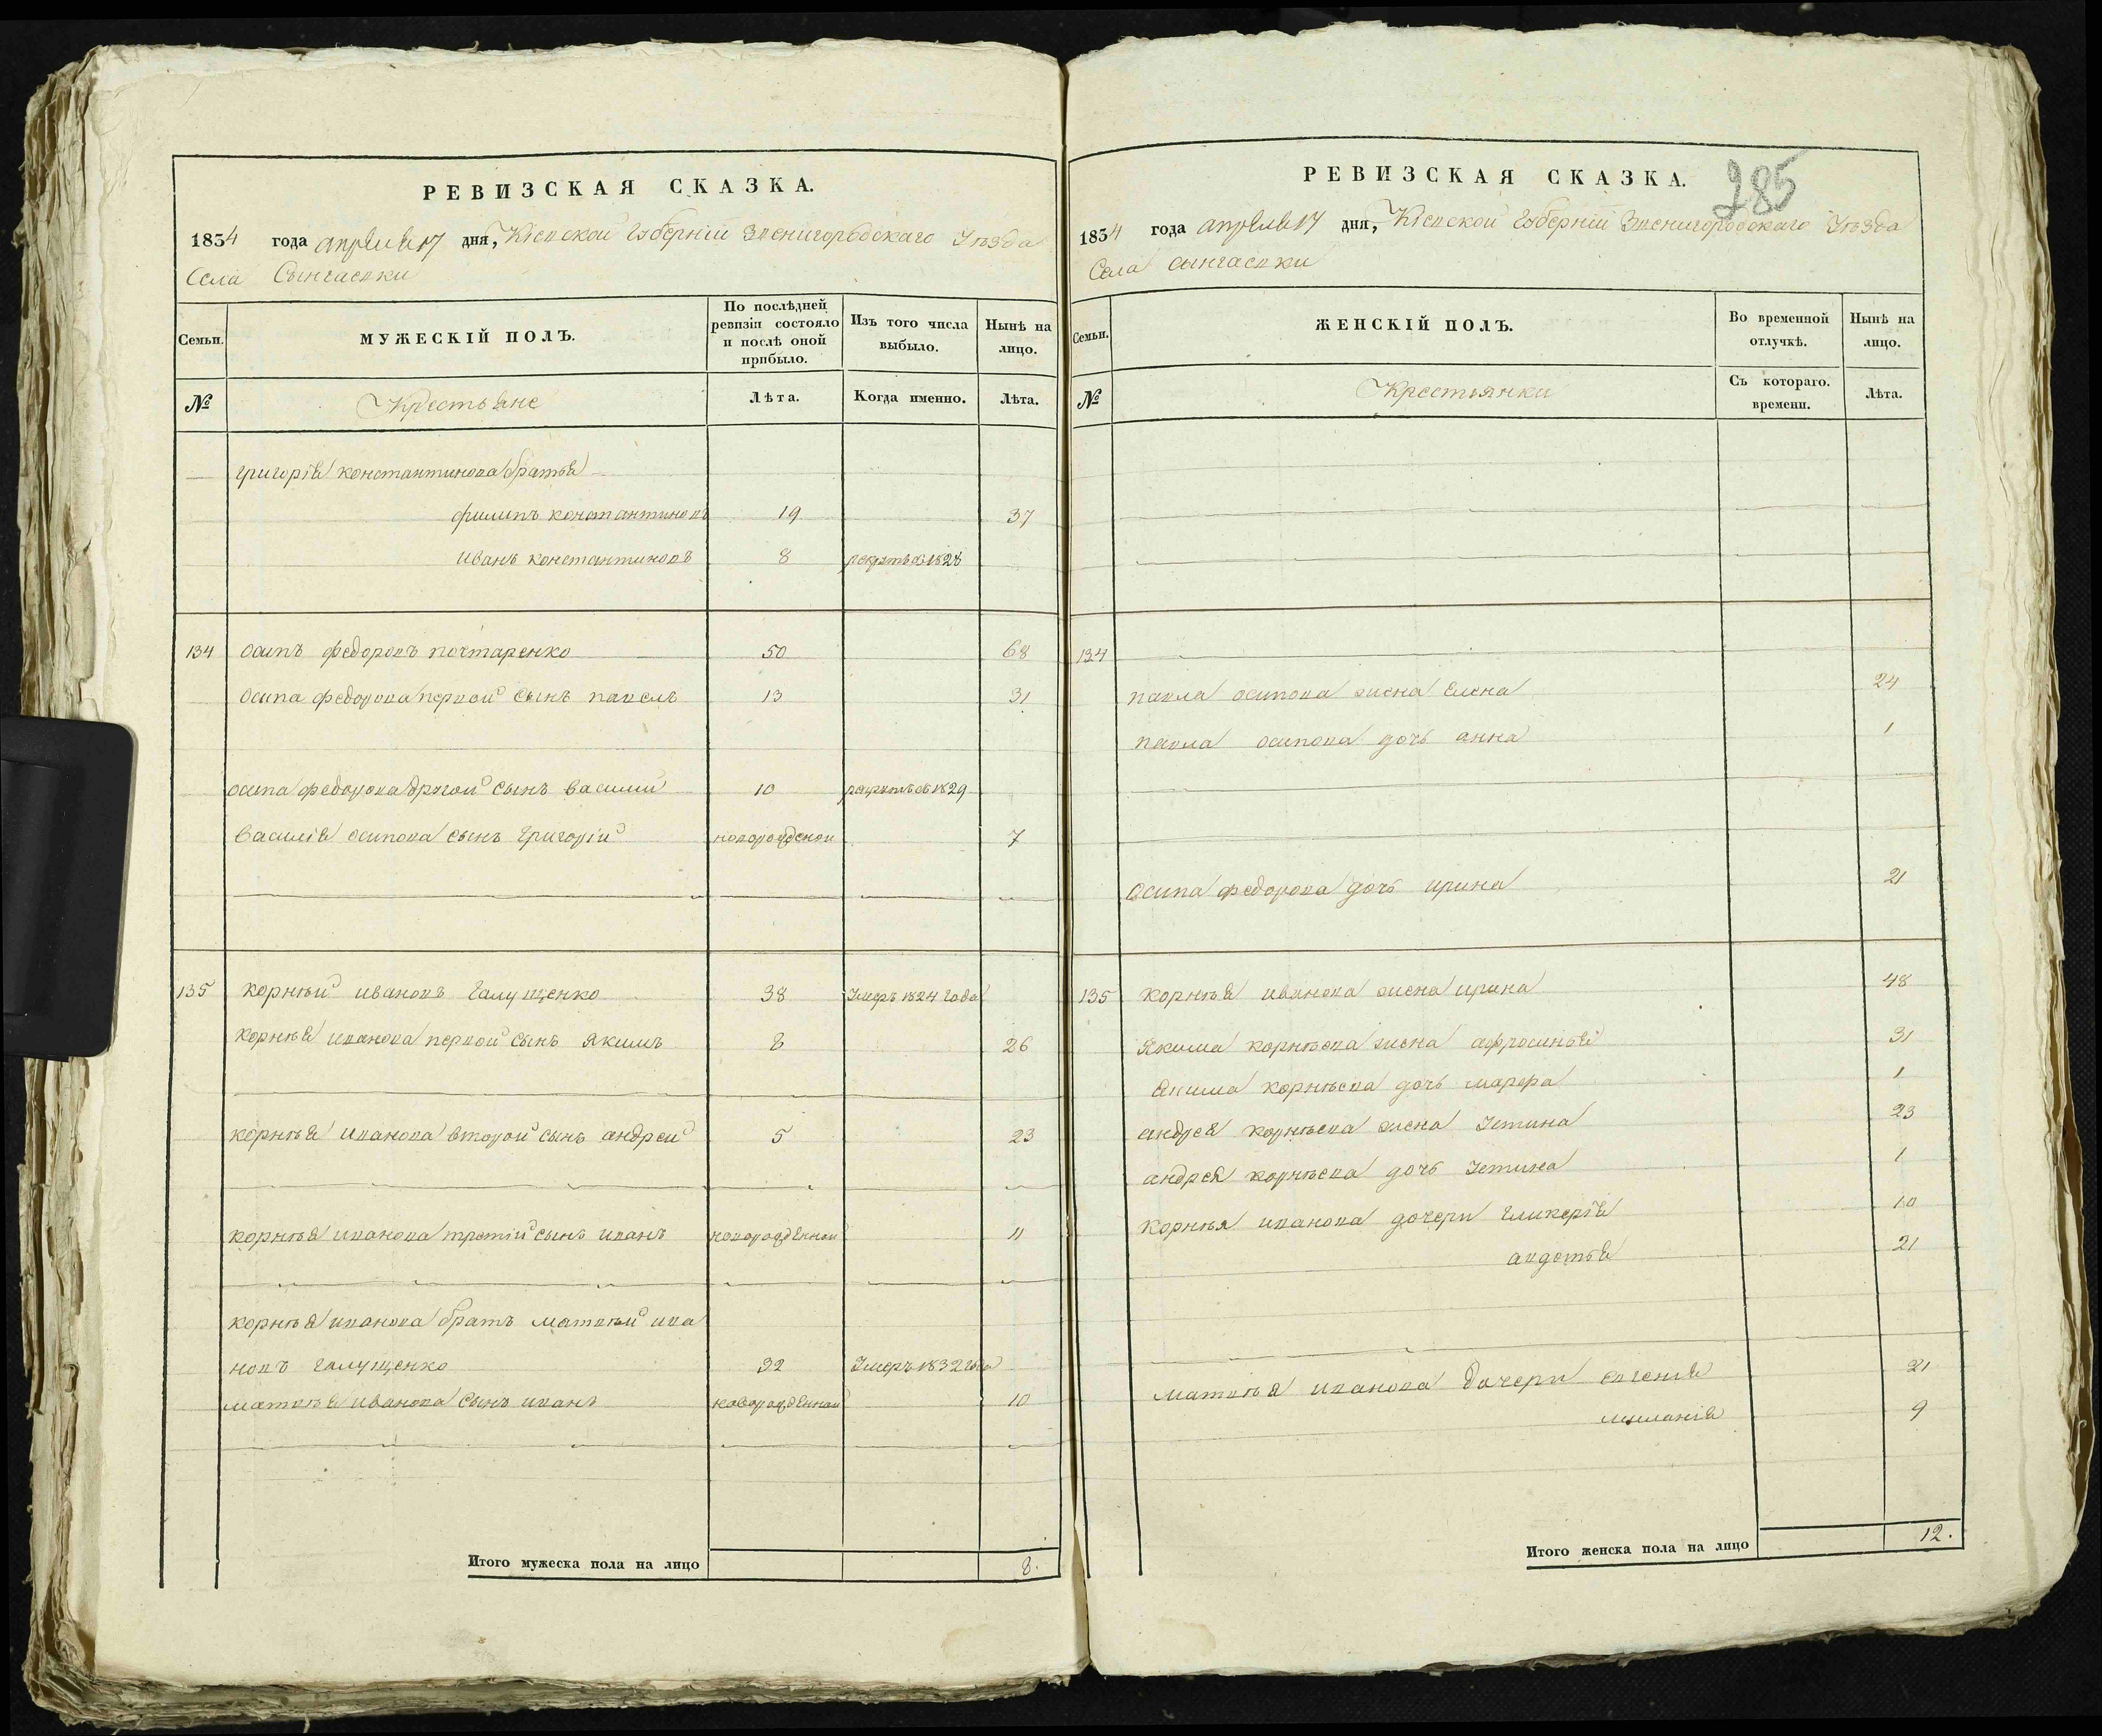 РЕВИЗСКАЯ СКАЗКА.
1834 года апреля 17 дня, Кіевской Губерніи Звенигородскаго Уезда
Села Сынгаевки
Семьи. МУЖЕСКІЙ ПОЛЪ. По послѣдней ревизіи состояло и послѣ оной прибыло. Изъ того числа выбыло. Нынѣ на лицо.
№ Крестьяне Лѣта. Когда именно. Лѣта.
григорія константинова братья
филипъ константиновъ 19 37
иванъ константиновъ 8 рекрутъ въ 1828
134 осипъ федоровъ почтаренко 50 68
осипа федорова первой сынъ павелъ 13 31
осипа федорова другой сынъ василий 10 рекрутъ въ 1829
василія осипова сынъ григорій новорожденой 7
135 корнѣй ивановъ галущенко 38 Умеръ 1824 года
корнѣя иванова первой сынъ якимъ 8 26
корнѣя иванова второй сынъ андрей 5 23
корнѣя иванова третій сынъ иванъ новорожденной 11
корнѣя иванова братъ матвѣй ива
новъ галущенко 32 Умеръ 1832 года
матвѣя иванова сынъ иванъ новорожденной 10
Итого мужеска пола на лицо 8.
РЕВИЗСКАЯ СКАЗКА. 285
1834 года апреля 17 дня, Кіевской Губерніи Звенигородскаго Уѣзда
Села сынгаевки
Семьи. ЖЕНСКІЙ ПОЛЪ. Во временной отлучкѣ. Нынѣ на лицо.
№ Крестьянки Съ котораго. времени. Лѣта.
134
павла осипова жена елена 24
павла осипова дочь анна 1
осипа федорова дочь ирина 21
135 корнѣя иванова жена ирина 48
якима корнѣева жена афросинья 31
якима корнѣева дочь марфа 1
андрея корнѣева жена Устина 23
андрея корнѣева дочь Устина 1
корнѣя иванова дочери гликерія 10
авдотья 21
матвѣя иванова дочери евгенія 21
миланія 9
Итого женска пола на лицо 12.